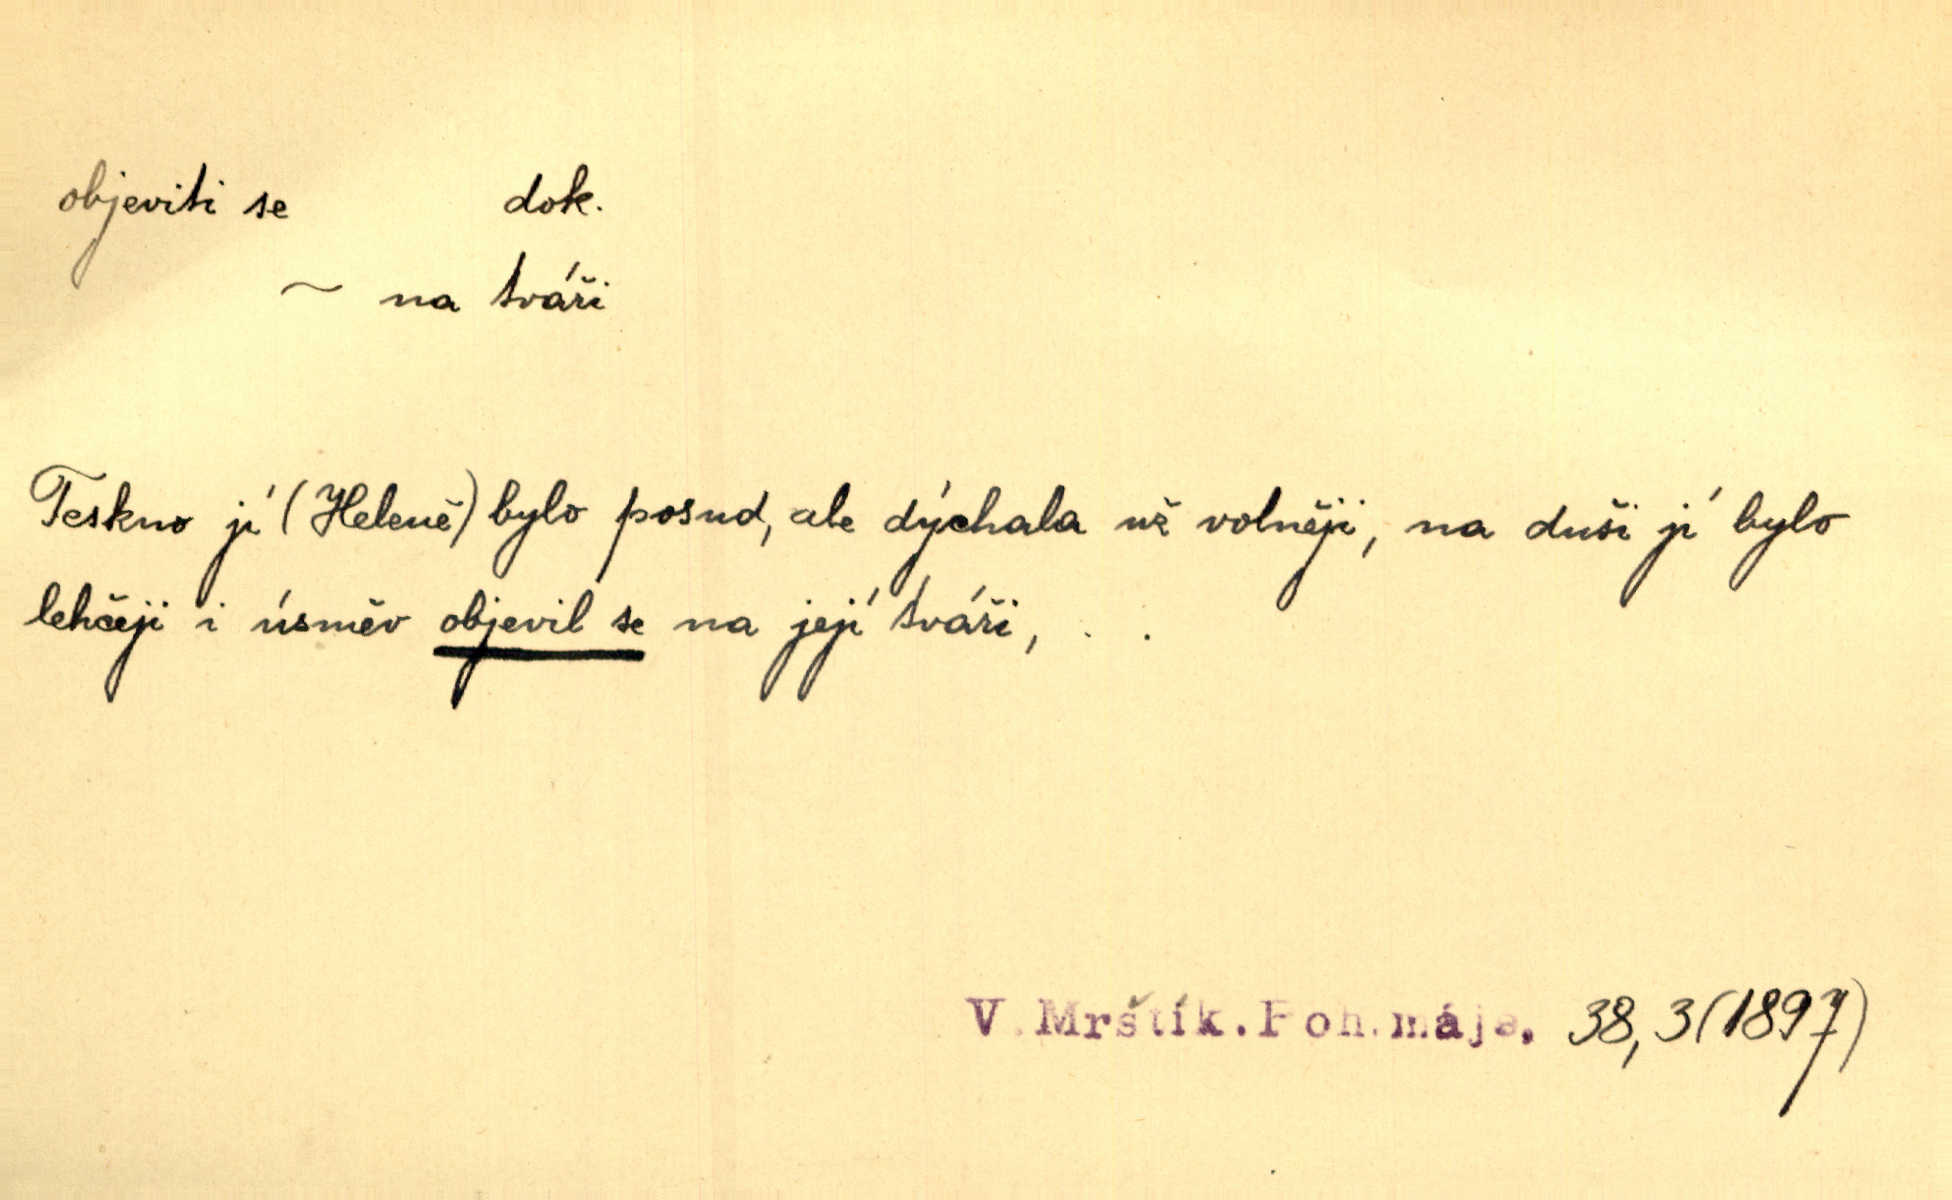 objeviti se dok.
~ na tváři
Teskno jí (Heleně) bylo posud, ale dýchala už volněji, na duši jí bylo
lehčeji i úsměv objevil se na její tváři, . .
V. Mrštík. Poh. máje, 38, 3 (1897)